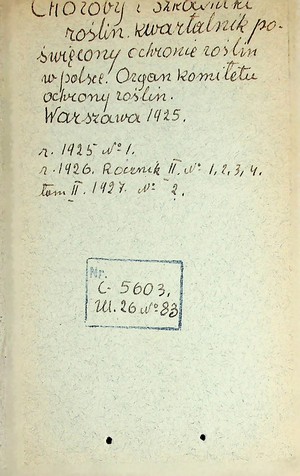 Choroby i szkodniki
roślin. kwartalnik po-
święcony ochronie roślin
w polsce. Organ komitetu
ochrony roślin.
Warszawa 1925.
r. 1925 № 1.
r. 1926. Rocznik II. № 1, 2, 3, 4.
tom II. 1927. № 2.
Nr.
C- 5603.
Ш. 26 № 83